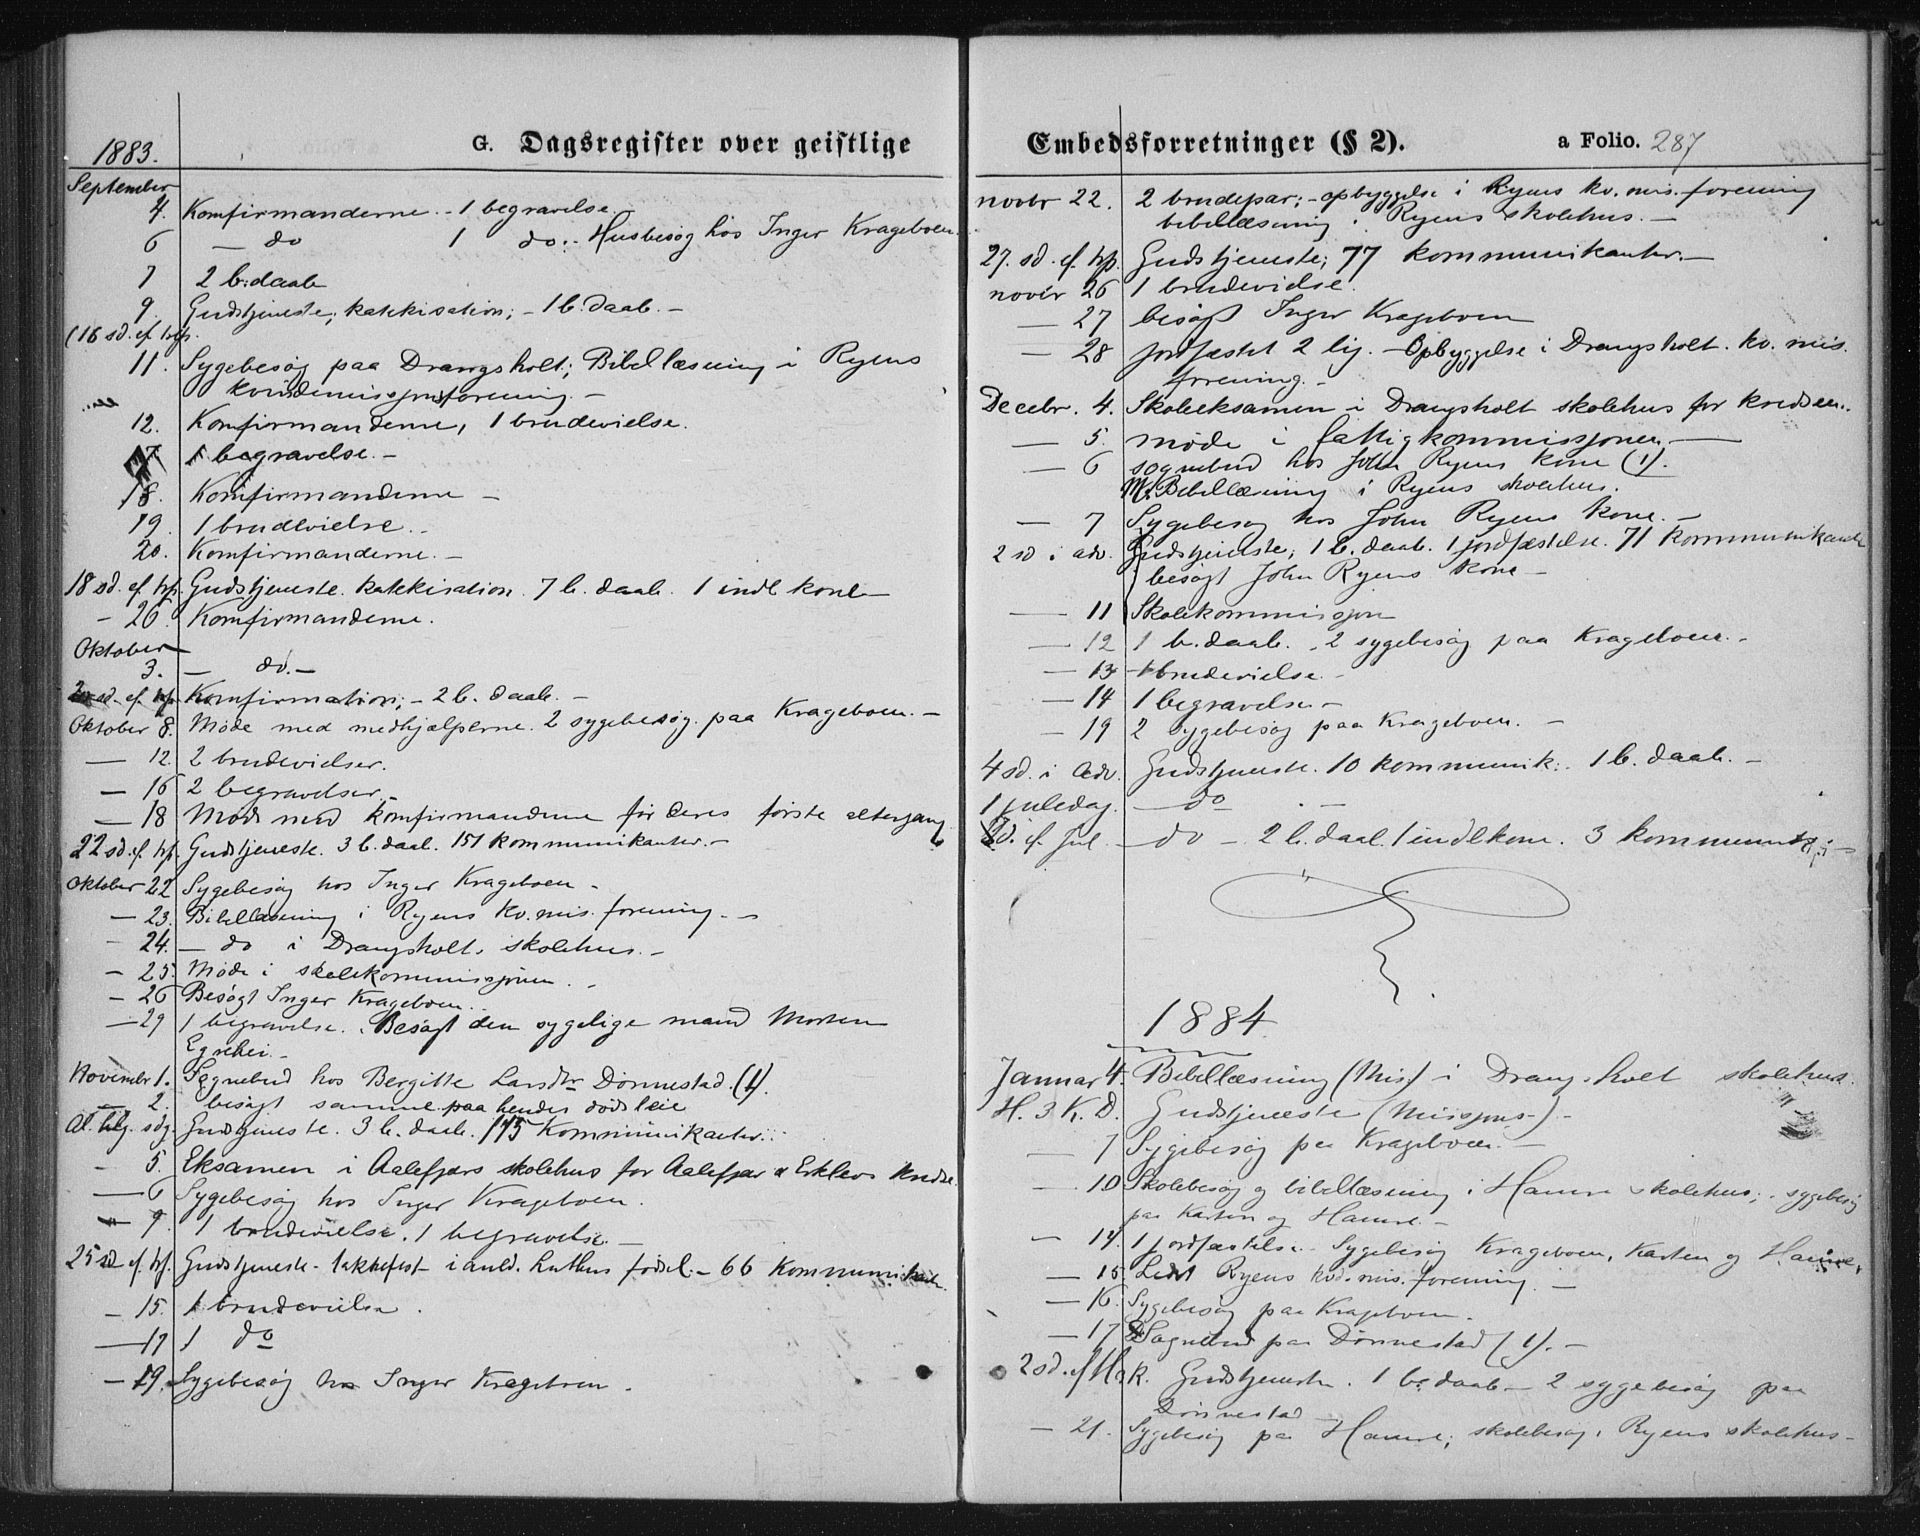 1883.
G. Dagsregister over geistlige
September
4. Komfirmanderne. - 1 begravelse.
6 — do 1 do: - Husbesøg hos Inger Krageboen.
7 2 b: daab
9. Gudstjeneste; katekisation; - 1 b. daab. -
(16 sd. ef. trf.
11. Sygebesøg paa Drangsholt; Bibellæsning i Ryens
kvindemissjonsforening. -
12. Komfirmanderne, 1 brudevielse.
17 1 begravelse. -
18. Komfirmanderne -
19. 1 brudevielse. -
20. Komfirmanderne. -
18 sd. ef. trf. Gudstjeneste. katekisation. 7 b. daab. 1 indl kone
- 26. Komfirmanderne.
Oktober
3. — do. -
sd. ef. trf. Komfirmation; - 2 b. daab. -
Oktober 8. Møde med medhjælperne. 2 sygebesøg paa Krageboen. -
— 12. 2 brudevielser.
— 16 2 begravelser. -
— 18 Møde med komfirmanderne før deres første altergang
22 sd. ef. trf. Gudstjeneste. 3 b. daab. 151 kommunikanter. -
Oktober 22 Sygebesøg hos Inger Krageboen -
— 23. Bibellæsning i Ryens kv. mis. forening. -
- 24. — do i Drangsholt. skolehus. -
- 25. Møde i skolekommissjonen. -
- 26 Besøgt Inger Krageboen.
— 29 1 begravelse. Besøgt den sygelige mand Morten
Egrehei. -
Novembr 1. Sognebud hos Bergitte Larsdtr Dønnestad. (1).
— 2. besøgt samme paa hendes dødsleie
Al. hlg. sdg. Gudstjeneste. 3 b. daab. 175 Kommunikanter.
- 5. Eksamen i Aalefjærs skolehus for Aalefjær & Erklevs kredse.
— 6 Sygebesøg hos Inger Krageboen.
— 9. 1 brudevielse. 1 begravelse. -
25 sd ef. trf. Gudstjeneste - takkefest i anld. Luthers fødsel. - 66 Kommunikanter
— 15. 1 brudevielse.
— 17 1 do
— 19. Sygebesøg hos Inger Krageboen.
Embedsforretninger (§ 2). a Folio. 287
novbr 22. 2 brudepar; - opbyggelse i Ryens kv. mis. forening
bibellæsning i Ryens skolehus. -
27. sd. ef. trf. Gudstjeneste; 77 kommunikanter. -
novbr 26 1 brudevielse.
— 27 besøgt Inger Krageboen
— 28 jordfæstet 2 lig. - Opbyggelse i Drangsholt. kv. mis.
forening. -
Decebr. 4. Skoleeksamen i Drangsholt skolehus for kredsen.
— 5. møde i fattigkommissjonen. —
— 6 sognebud hos John Ryens kone (1).
Bibellæsning i Ryens skolehus.
— 7 Sygebesøg hos John Ryens kone. -
2 sd i adv. Gudstjeneste; 1 b. daab. 1 jordfæstelse. 71 kommunikanter
besøgt John Ryens kone -
— 11 Skolekommissjon
— 12 1 b. daab. 2 sygebesøg paa Krageboen. -
— 13 1 brudevielse. -
— 14 1 begravelse. -
— 19 2 sygebesøg paa Krageboen. -
4 sd. i Adv. Gudstjeneste. 10 kommunik: 1 b. daab. -
1 juledag. — do -
Sd. ef. Jul — do - 2 b. daab. 1 indl kone. 3 kommunik.
1884
Januar 4. Bibellæsning (Mis) i Drangsholt skolehus.
H. 3 K. D. Gudstjeneste (Missjons-). -
— 7 Sygebesøg paa Krageboen. -
— 10 Skolebesøg og bibellæsning i Hamre skolehus; sygebesøg
paa Karten og Hamre. -
— 14. 1 jordfæstelse. Sygebesøg Krageboen, Karten og Hamre,
— 15. Ledet Ryens kvd. mis. forening. -
— 16. Sygebesøg paa Krageboen.
— 17 Sognebud paa Dønnestad (1). -
2 sd. ef H3k. Gudstjeneste. 1 b. daab - 2 sygebesøg paa
Dønnestad
— 21. Sygebesøg paa Hamre; skolebesøg i Ryens skolehus -